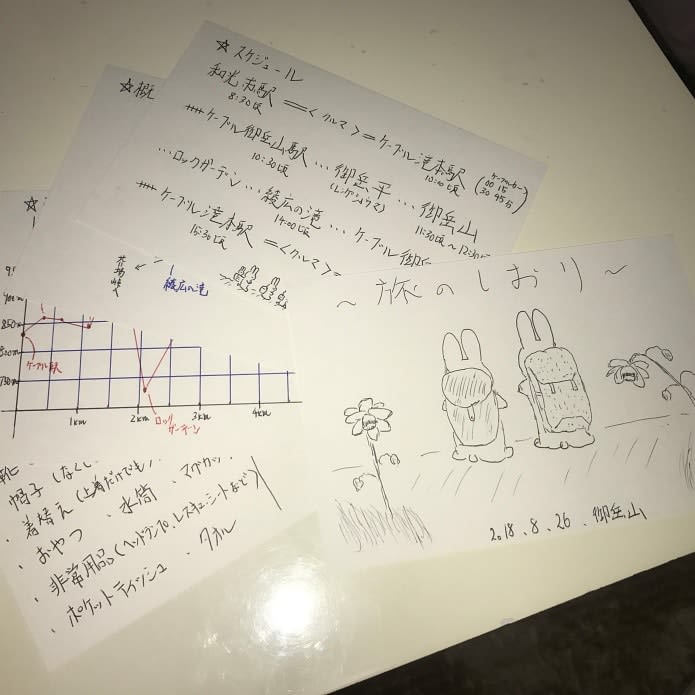 ☆スケジュール
和光市駅 ==<クルマ>= ケーブル滝本駅
8:30頃
10:00頃
ケーブルカー
00 15
30 45
ケーブル御岳山駅 … 御岳平 … 御岳山
10:30頃
(レンゲショウマ)
11:30頃~12:30
…ロックガーデン … 綾広の滝 … ケーブル御
14:00頃
ケーブル滝本駅 ==<クルマ>=
15:30頃
☆概
☆
綾広の滝
900m
850m
800m
750m
ケーブル駅
1km
2km
3km
4km
ロック
ガーデン
靴
帽子
・着替え(上着だけでも)
・おやつ ・水筒 ・マグカップ
・非常用品(ヘッドランプ、レスキューシートなど)
・ポケットティッシュ ・タオル
~旅のしおり~
2018.8.26.御岳山